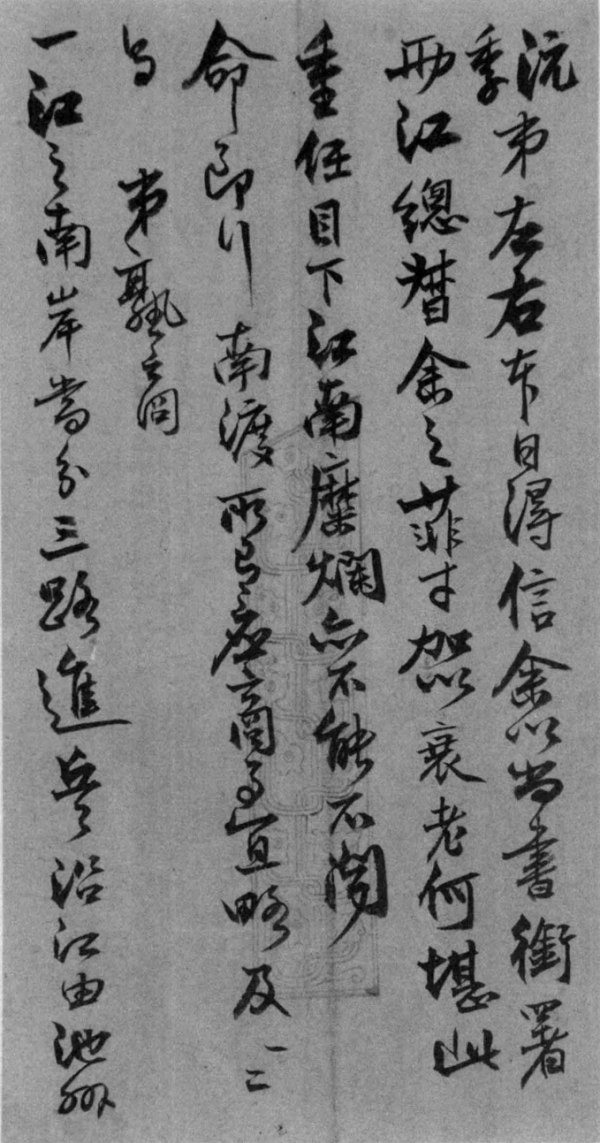 沅季弟左右本日得信余以尚書銜署
兩江總督余之菲才加以衰老何堪此
重任目下江南糜爛亦不能不聞
命即行南渡所有應商事宜略及一二
與弟熟
一江之南岸當分三路進兵沿江由池州